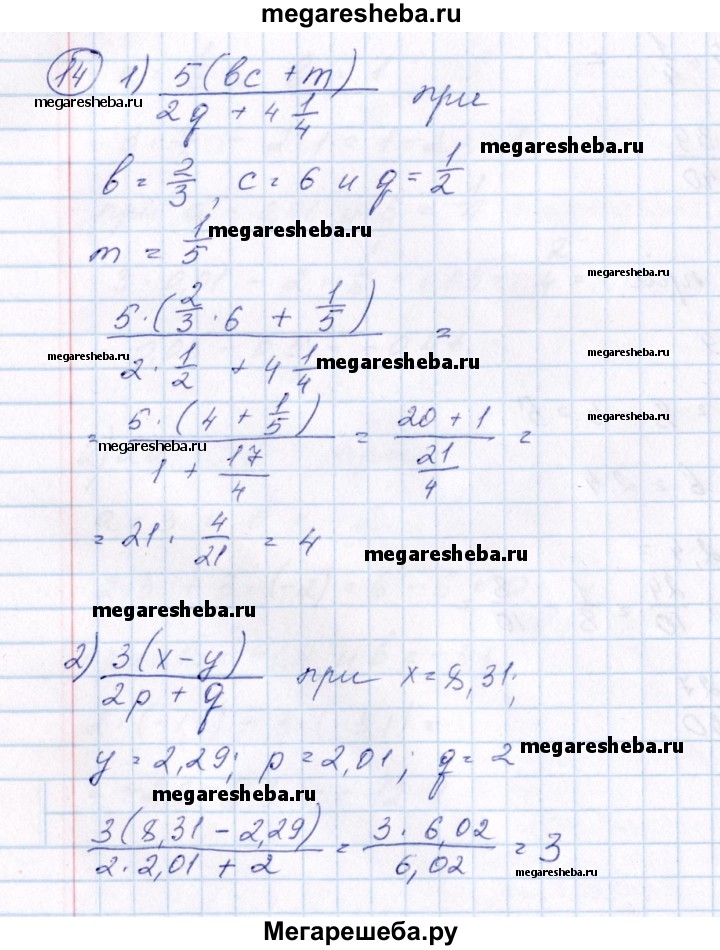 megaresheba.ru
14 1) 5(bc + m) / (2q + 4 1/4) при
megaresheba.ru
megaresheba.ru
b = 2/3, c = 6 и q = 1/2
m = 1/5
megaresheba.ru
megaresheba.ru
5·(2/3·6 + 1/5) / (2·1/2 + 4 1/4) =
megaresheba.ru
megaresheba.ru
megaresheba.ru
= 5·(4 + 1/5) / (1 + 17/4) = (20 + 1) / (21/4) =
megaresheba.ru
megaresheba.ru
= 21 · 4/21 = 4
megaresheba.ru
megaresheba.ru
2) 3(x - y) / (2p + q) при x = 8,31;
y = 2,29; p = 2,01; q = 2
megaresheba.ru
megaresheba.ru
3(8,31 - 2,29) / (2·2,01 + 2) = 3·6,02 / 6,02 = 3
megaresheba.ru
Мегарешеба.ру